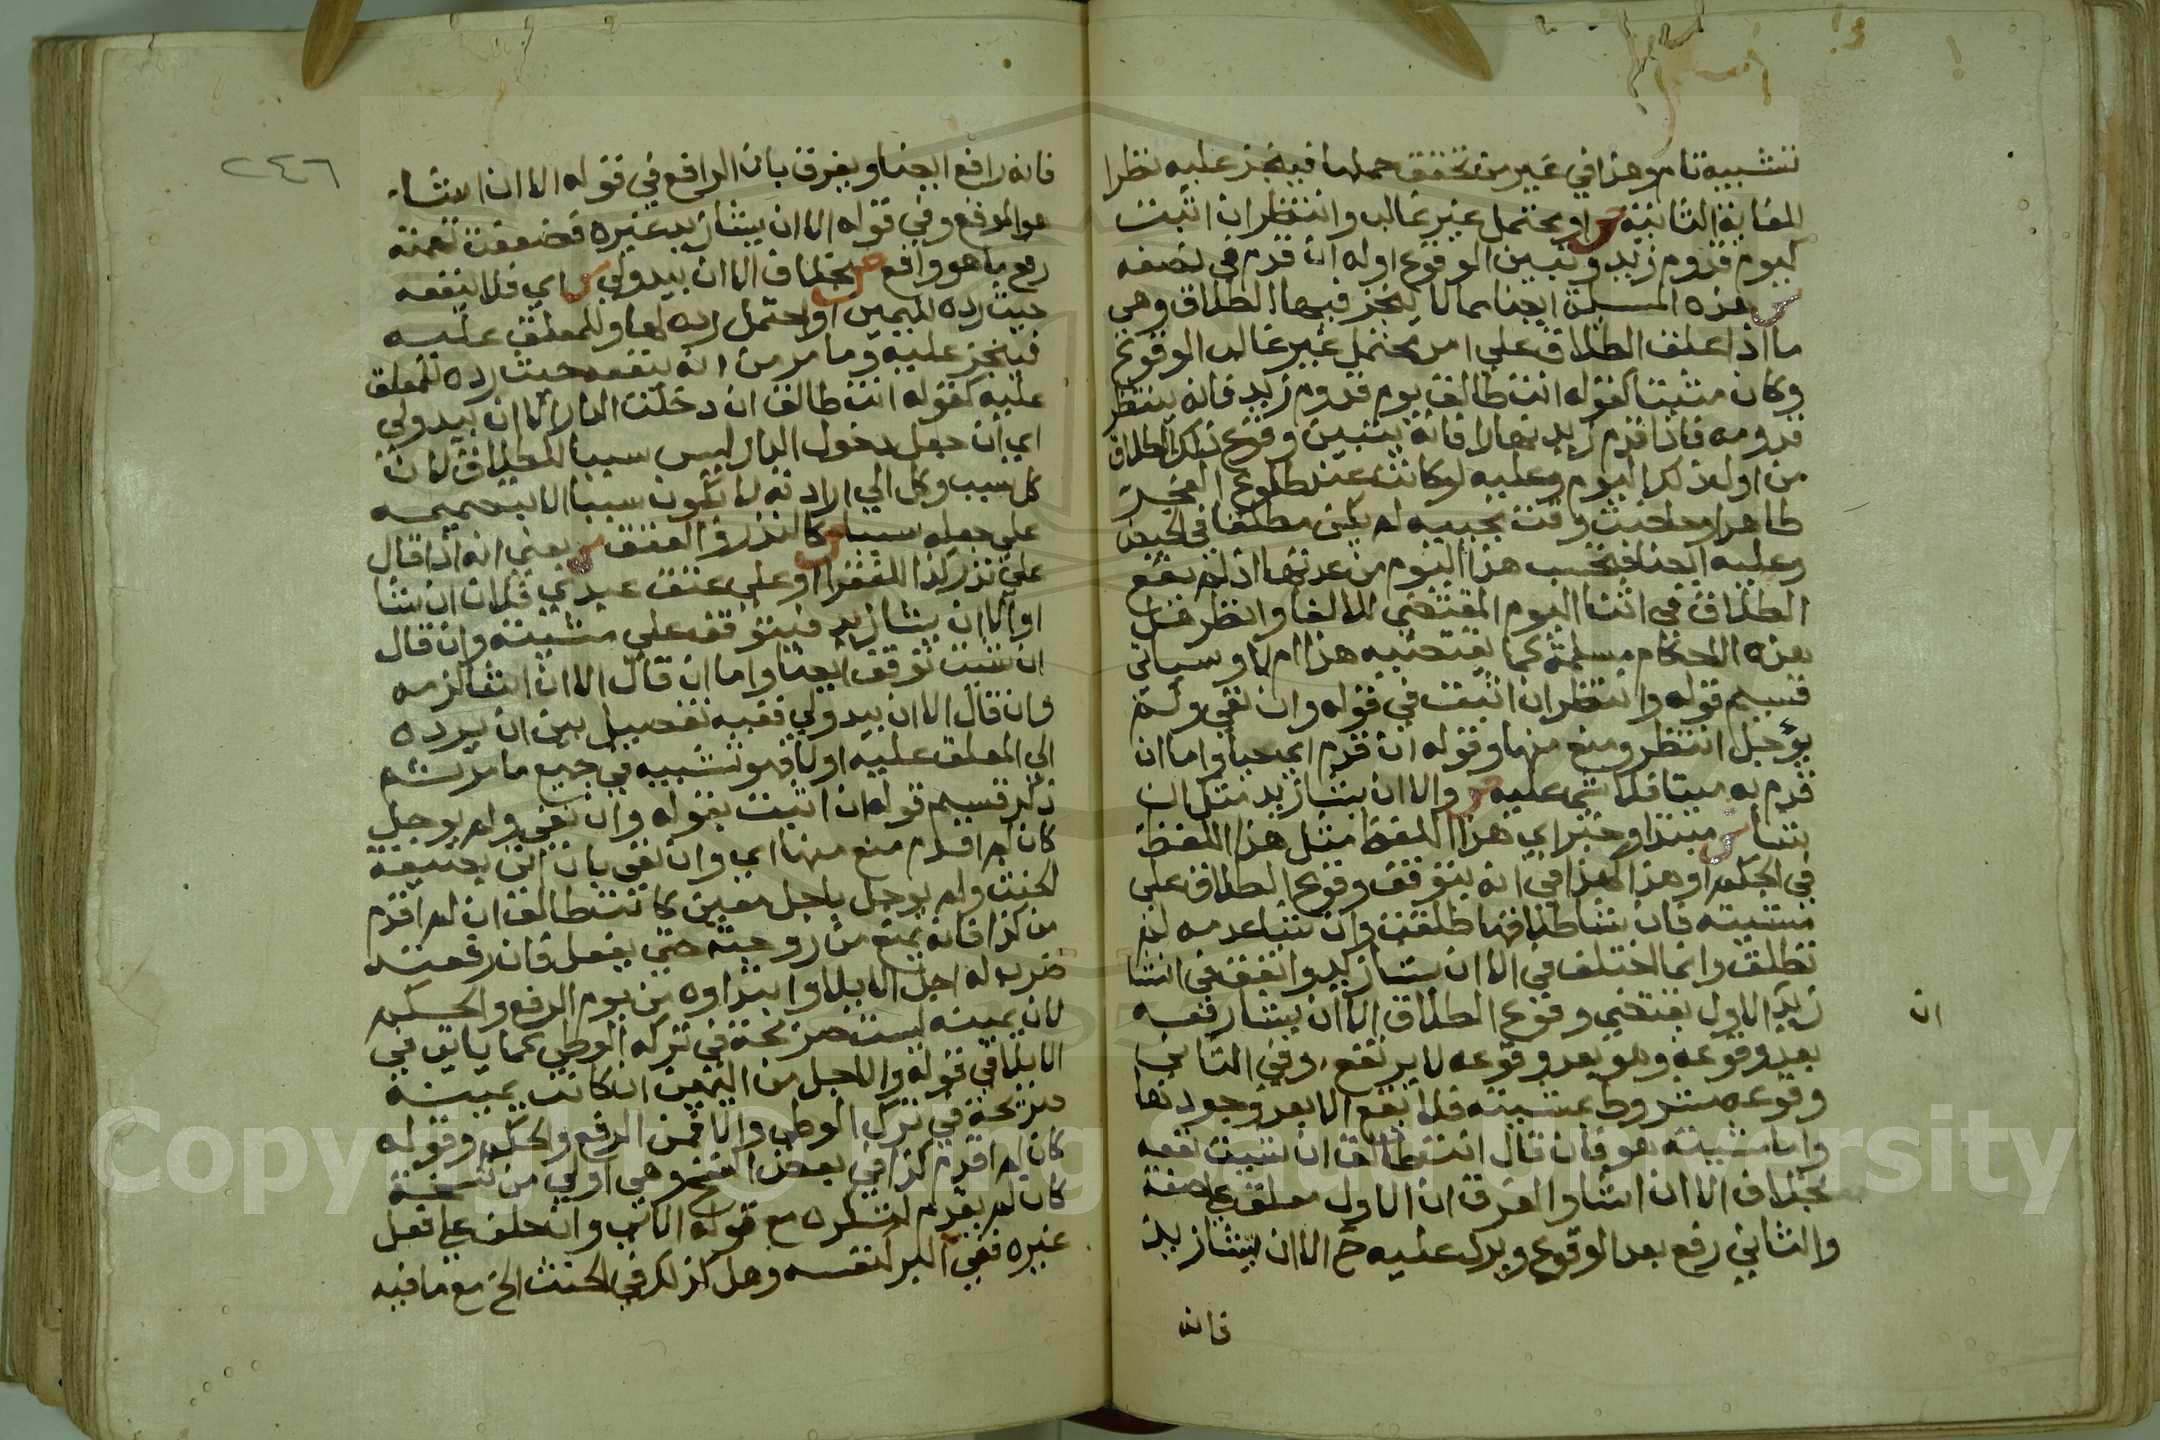 تشبيه تام وهذا في غير من تحقق حملها فينجز عليه نظرا
للغاية الثانية ص او يحتمل غير غالب وانتظر ان اثبت
كيوم قدوم زيد وتبين الوقوع اوله ان قدم في نصفه
ش هذه المسئلة ايضا مما لا ينجز فيها الطلاق وهي
ما اذا علق الطلاق على امر يحتمل غير غالب الوقوع
وكان مثبتا كقوله انت طالق يوم قدوم زيد فانه ينتظر
قدومه فاذا قدم زيد نهارا فانه يتبين وقوع ذلك الطلاق
من اول ذلك اليوم وعليه لو كانت عند طلوع الفجر
طاهرا وحاضت وقت مجيئه لم يكن مطلقا في الحيض
وعليه ايضا فتحسب هذا اليوم من عدتها اذ لم يقع
الطلاق في اثنا اليوم المقتضي للالغا وانظر هل
هذه الاحكام مسلمة كما يقتضيه هذا ام لا وسياتي
قسيم قوله وانتظر ان اثبت في قوله وان نفي ولم
يؤجل انتظر ومنع منها وقوله ان قدم اي حيا واما ان
قدم به ميتا فلا شي عليه ص والا ان يشا زيد مثل ان
يشا ش مبتدا وخبر اي هذا اللفظ مثل هذا اللفظ
في الحكم او هذا كهذا في انه يتوقف وقوع الطلاق على
مشيئته فان شا طلاقها طلقت وان شا عدمه لم
تطلق وانما اختلف في الا ان يشا زيد واتفق في ان شا
زيد لان الاول يقتضي وقوع الطلاق الا ان يشا رفعه
بعد وقوعه وهو بعد وقوعه لا يرتفع وفي الثاني
وقوعه مشروط بمشيئته فلا يقع الا بعد وجودها
واما مشيئته هو فان قال انت طالق ان شئت نفعه
بخلاف الا ان اشا والفرق ان الاول معلق على صفة
والثاني رفع بعد الوقوع ويدل عليه ح الا ان يشا زيد
فانه
ان
٢٤٦
فانه رافع ايضا ويفرق بان الرافع في قوله الا ان اشاء
هو الموقع وفي قوله الا ان يشا زيد غيره فضعفت تهمة
رفع ما هو واقع ص بخلاف الا ان يبدو لي ش اي فلا ينفعه
حيث رده لليمين او احتمل رده لها وللمعلق عليه
فينجز عليه وما مر من انه ينفعه حيث رده للمعلق
عليه كقوله انت طالق ان دخلت الدار الا ان يبدو لي
اي ان جعل دخول الدار ليس سببا للطلاق لان
كل سبب وكل الي ارادته لا يكون سببا الا بتصميمه
على جعله سببا ص كالنذر والعتق ش يعني انه اذا قال
علي نذر كذا للفقرا او علي عتق عبدي فلان ان شا
او الا ان يشا زيد فيتوقف على مشيئته وان قال
ان شئت توقف ايضا واما ان قال الا ان اشا لزمه
وان قال الا ان يبدو لي ففيه تفصيل بين ان يرده
الى المعلق عليه او لا فهو تشبيه في جميع ما مر ثم
ذكر قسيم قوله ان اثبت بقوله وان نفي ولم يوجل
كان لم اقدم منع منها اي وان نفي بان اتى بصيغة
الحنث ولم يوجل باجل معين كانت طالق ان لم اقدم
من كذا فانه يمنع من زوجته حتى يفعل فان رفعته
ضرب له اجل الايلا وابتداوه من يوم الرفع والحكم
لان يمينه ليست صريحة في ترك الوطي كما ياتي في
الايلا في قوله والاجل من اليمين ان كانت يمينه
صريحة في ترك الوطي والا فمن الرفع والحكم وقوله
كان لم اقدم كذا في بعض النسخ وهي اولى من نسخة
كان لم يقدم لتكرره مع قوله الاتي وان حلف على فعل
غيره ففي البر كنفسه وهل كذلك في الحنث الخ مع ما فيه
Copyright © King Saud University